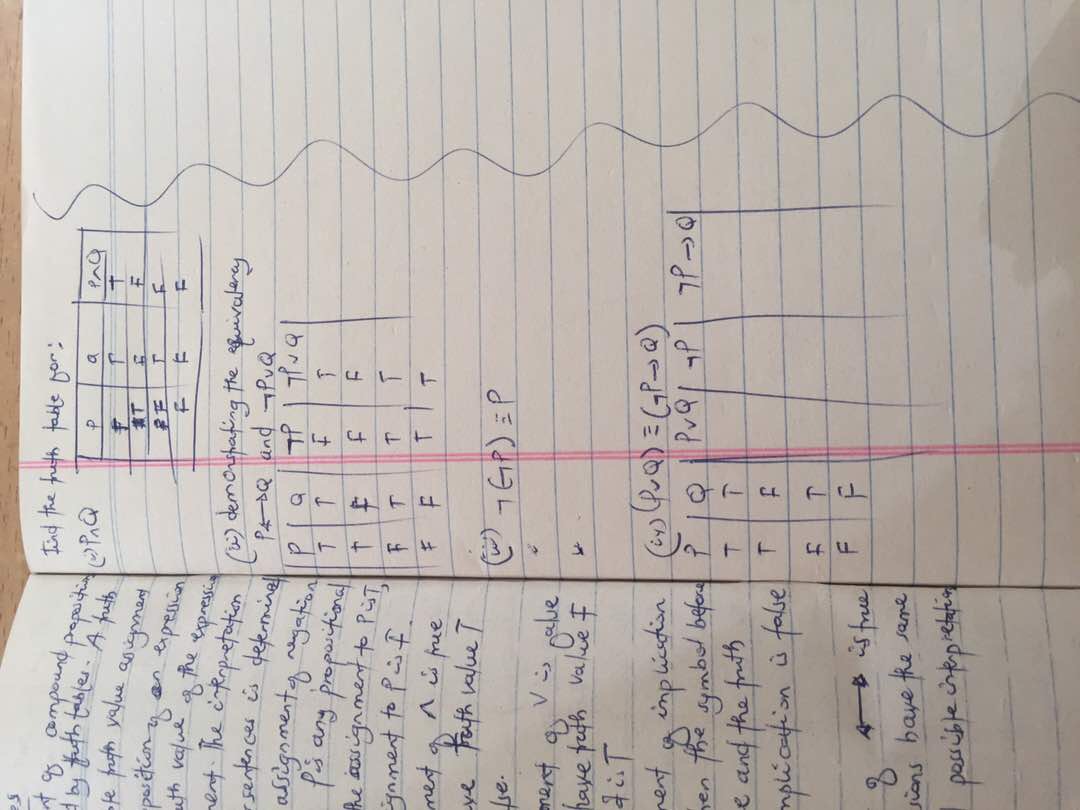 of compound proposition
by truth tables. A truth
truth value assignment
position of an expression
truth value of the expression
ment. The interpretation
sentences is determined
assignment of negation
P is any propositional
the assignment to P is T,
ignment to P is F.
ment of ∧ is true
truth value T
ment of ∨ is false
have truth value F
it is T
ment of implication
the symbol before
e and the truth
mplication is false
of ↔ is true
sions have the same
possible interpretation
Find the truth table for:
(i) P∧Q
P Q P∧Q
T T
F F
F T F
F F F
(ii) demonstrating the equivalency
P→Q and ¬P∨Q
P Q ¬P ¬P∨Q
T T F T
T F F F
F T T T
F F T T
(iii) ¬(¬P) ≡ P
(iv) (P∨Q) ≡ (¬P→Q)
P Q P∨Q ¬P ¬P→Q
T T
T F
F T
F F